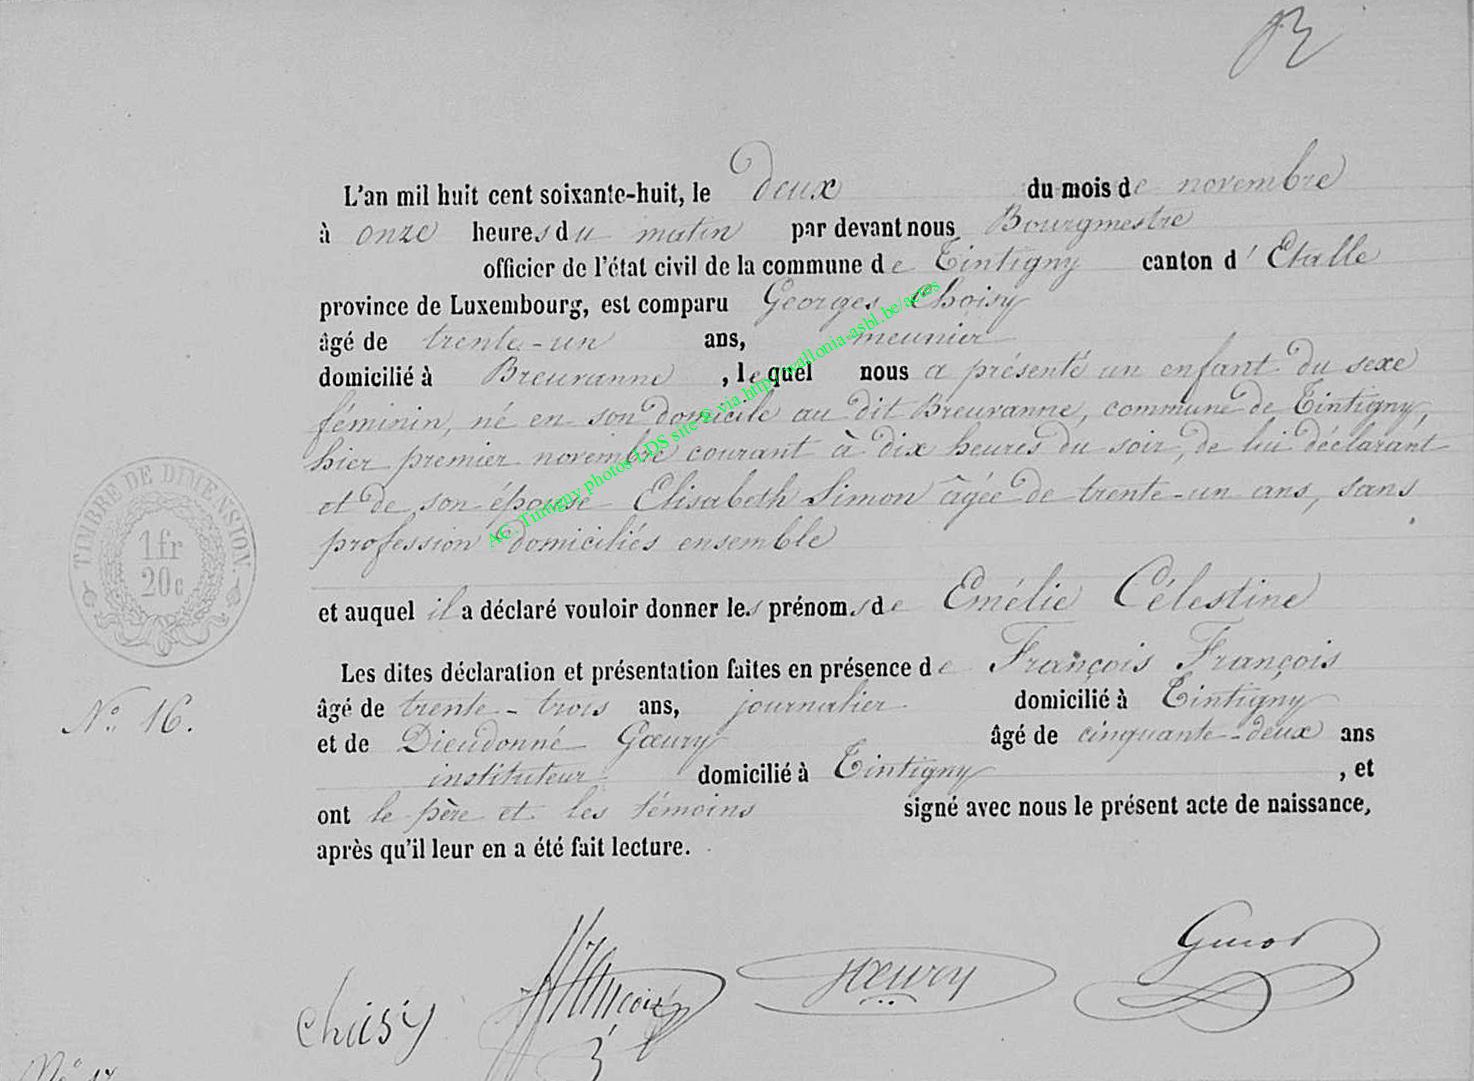 L'an mil huit cent soixante-huit, le deux du mois de novembre
à onze heures du matin par devant nous Bourgmestre
officier de l'état civil de la commune de Tintigny canton d'Etalle
province de Luxembourg, est comparu Georges Choisy
âgé de trente-un ans, meunier
domicilié à Breuvanne, lequel nous a présenté un enfant du sexe
féminin, né en son domicile au dit Breuvanne, commune de Tintigny,
hier premier novembre courant à dix heures du soir, de lui déclarant
et de son épouse Elisabeth Simon âgée de trente-un ans, sans
profession domiciliés ensemble
et auquel il a déclaré vouloir donner les prénoms de Emélie Célestine
Les dites déclaration et présentation faites en présence de François François
âgé de trente-trois ans, journalier domicilié à Tintigny
et de Dieudonné Gœury âgé de cinquante-deux ans
instituteur domicilié à Tintigny, et
ont le père et les témoins signé avec nous le présent acte de naissance,
après qu'il leur en a été fait lecture.
TIMBRE DE DIMENSION.
1 fr
20 c
No. 16.
AC. Tintigny photos LDS site © via http://wallonia-asbl.be/actes
Choisy François Gœury